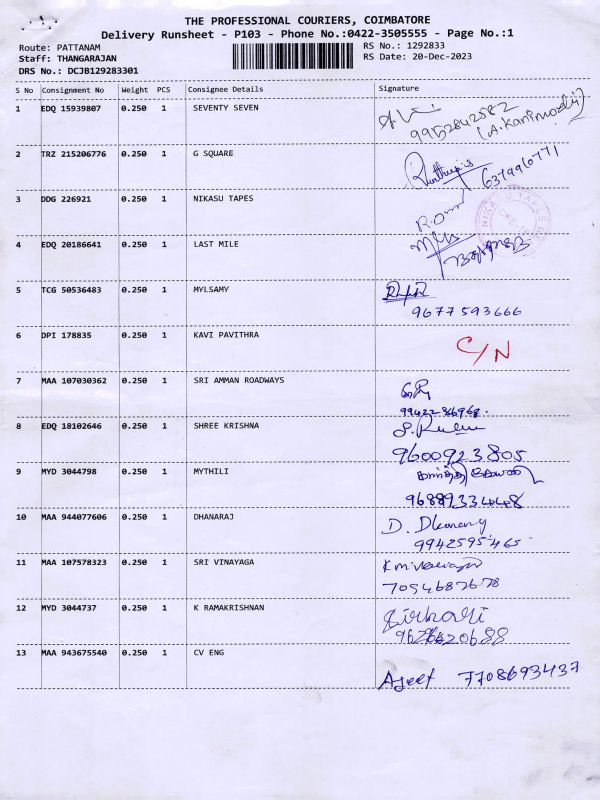 THE PROFESSIONAL COURIERS, COIMBATORE
Delivery Runsheet - P103 - Phone No.:0422-3505555 - Page No.:1
Route: PATTANAM
RS No.: 1292833
Staff: THANGARAJAN
RS Date: 20-Dec-2023
DRS No.: DCJB129283301
S No Consignment No Weight PCS Consignee Details Signature
1 EDQ 15939807 0.250 1 SEVENTY SEVEN
9952842582
(A.Kanimozhi)
2 TRZ 215206776 0.250 1 G SQUARE
6379960771
3 DDG 226921 0.250 1 NIKASU TAPES
NIKASU TAPES
4 EDQ 20186641 0.250 1 LAST MILE
5 TCG 50536483 0.250 1 MYLSAMY
9677593666
6 DPI 178835 0.250 1 KAVI PAVITHRA C/N
7 MAA 107030362 0.250 1 SRI AMMAN ROADWAYS
8 EDQ 18102646 0.250 1 SHREE KRISHNA
9600923805
9 MYD 3044798 0.250 1 MYTHILI
10 MAA 944077606 0.250 1 DHANARAJ D.
9942595465
11 MAA 107578323 0.250 1 SRI VINAYAGA
12 MYD 3044737 0.250 1 K RAMAKRISHNAN
13 MAA 943675540 0.250 1 CV ENG
Ajeet 7708693437